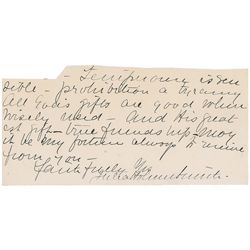 Temperance is sen
sible - prohibition a tyranny
All God's gifts are good when
wisely used - And His great
est gift - true friendship - may
it be my fortune always to receive
from you -
Faithfully